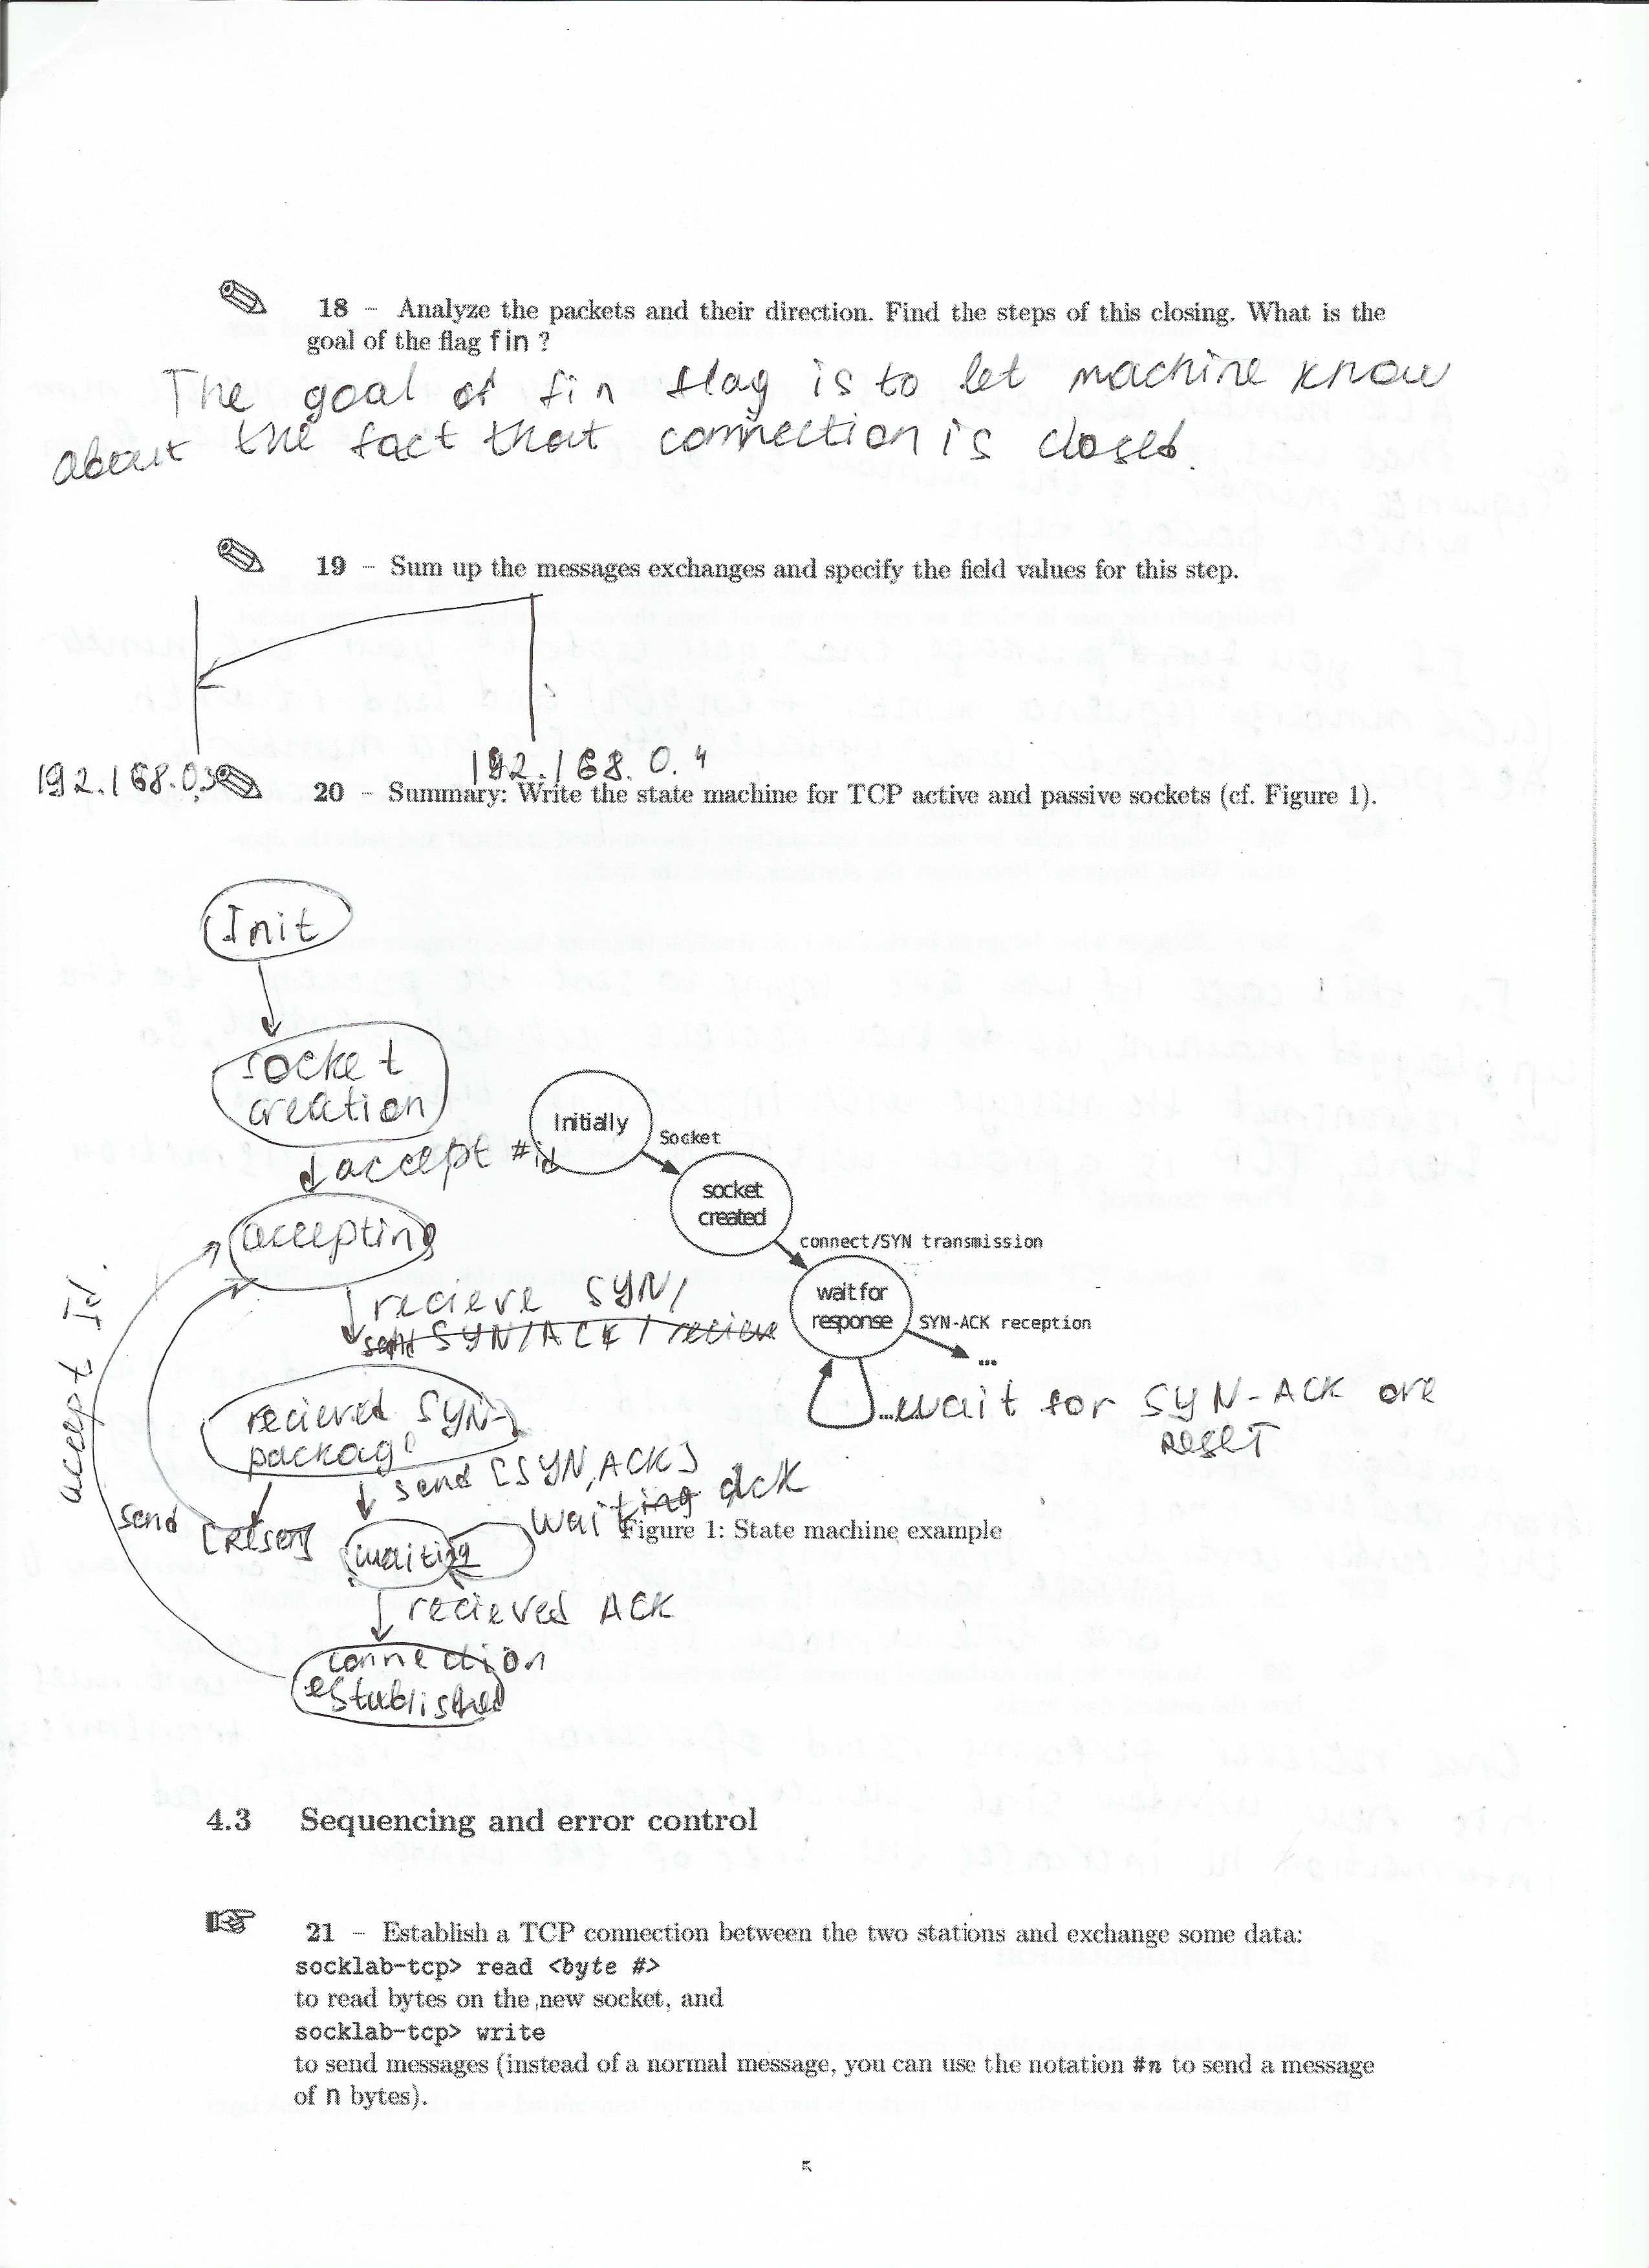 18 – Analyze the packets and their direction. Find the steps of this closing. What is the
goal of the flag fin ?
The goal of fin flag is to let machine know
about the fact that connection is closed.
19 – Sum up the messages exchanges and specify the field values for this step.
192.168.0.3
192.168.0.4
20 – Summary: Write the state machine for TCP active and passive sockets (cf. Figure 1).
Init
socket
creation
accept #id
accepting
recieve SYN/
send SYN/ACK/recieve
recieved SYN-
package
send [SYN, ACK]
send [RESET]
waiting
waiting ack
recieved ACK
connection
established
accept Id.
Initially
Socket
socket
created
connect/SYN transmission
wait for
response
SYN-ACK reception
...
...wait for SYN-ACK ore
RESET
Figure 1: State machine example
4.3 Sequencing and error control
21 – Establish a TCP connection between the two stations and exchange some data:
socklab-tcp> read <byte #>
to read bytes on the new socket, and
socklab-tcp> write
to send messages (instead of a normal message, you can use the notation #n to send a message
of n bytes).
5